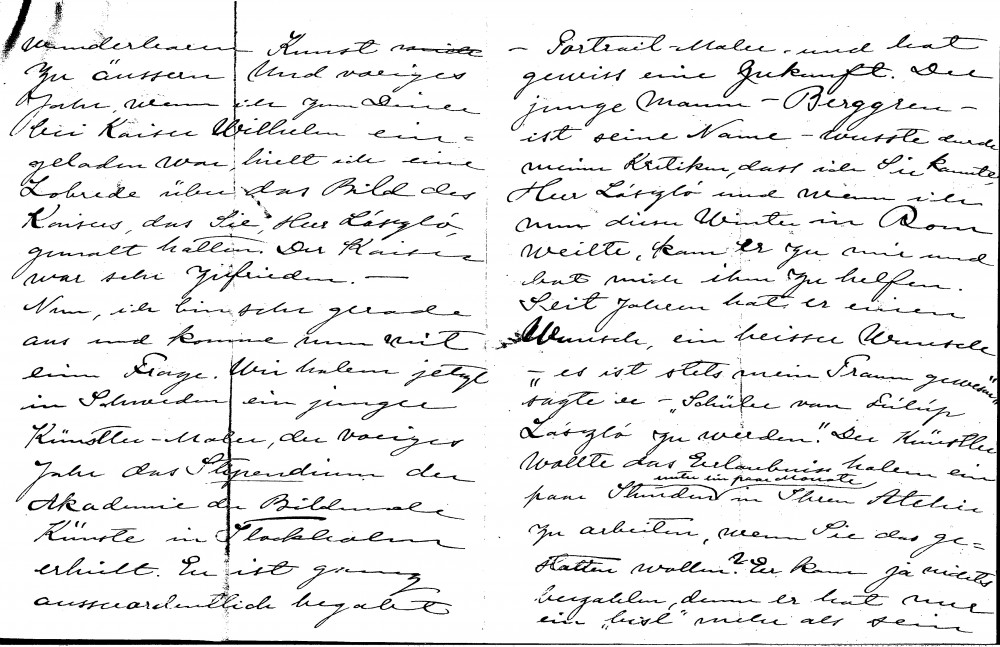 wunderbaren Kunst
zu äussern. Und voriges
Jahr, wenn ich zum Diner
bei Kaiser Wilhelm ein=
geladen war, hielt ich eine
Lobrede über das Bild des
Kaisers, das Sie, Herr László,
gemalt hatten. Der Kaiser
war sehr zufrieden. —
Nun, ich bin sehr gerade
aus und komme nun mit
eine Frage. Wir haben jetzt
in Schweden ein junger
Künstler-Maler, der voriges
Jahr das Stipendium der
Akademie der Bildende
Künste in Stockholm
erhielt. Er ist ganz
ausserordentlich begabt
– Portrait-Maler – und hat
gewiss eine Zukunft. Der
junge Mann – Berggren –
ist seine Name – wusste durch
meine Kritiken, dass ich Sie kannte,
Herr László und wenn ich
nun diesen Winter in Rom
weilte, kam er zu mir und
bat mich ihm zu helfen.
Seit Jahren hat er einen
Wunsch, ein heisser Wunsch
– "es ist stets mein Traum gewesen"
sagte er – „Schüler von Fülöp
László zu werden." Der Künstler
wollte das Erlaubniss haben ein
paar Stunden unter ein paar Monate in Ihrem Atelier
zu arbeiten, wenn Sie das ge=
statten wollen? Er kann ja nichts
bezahlen, denn er hat nur
ein „bisl" mehr als sein